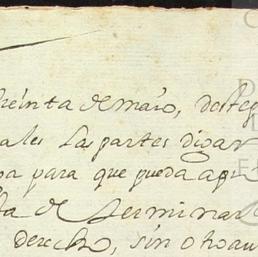 treinta de maio, dosteg
ales las partes digan
pa para que pueda aqu
ta de terminar
derecho, sin otro au